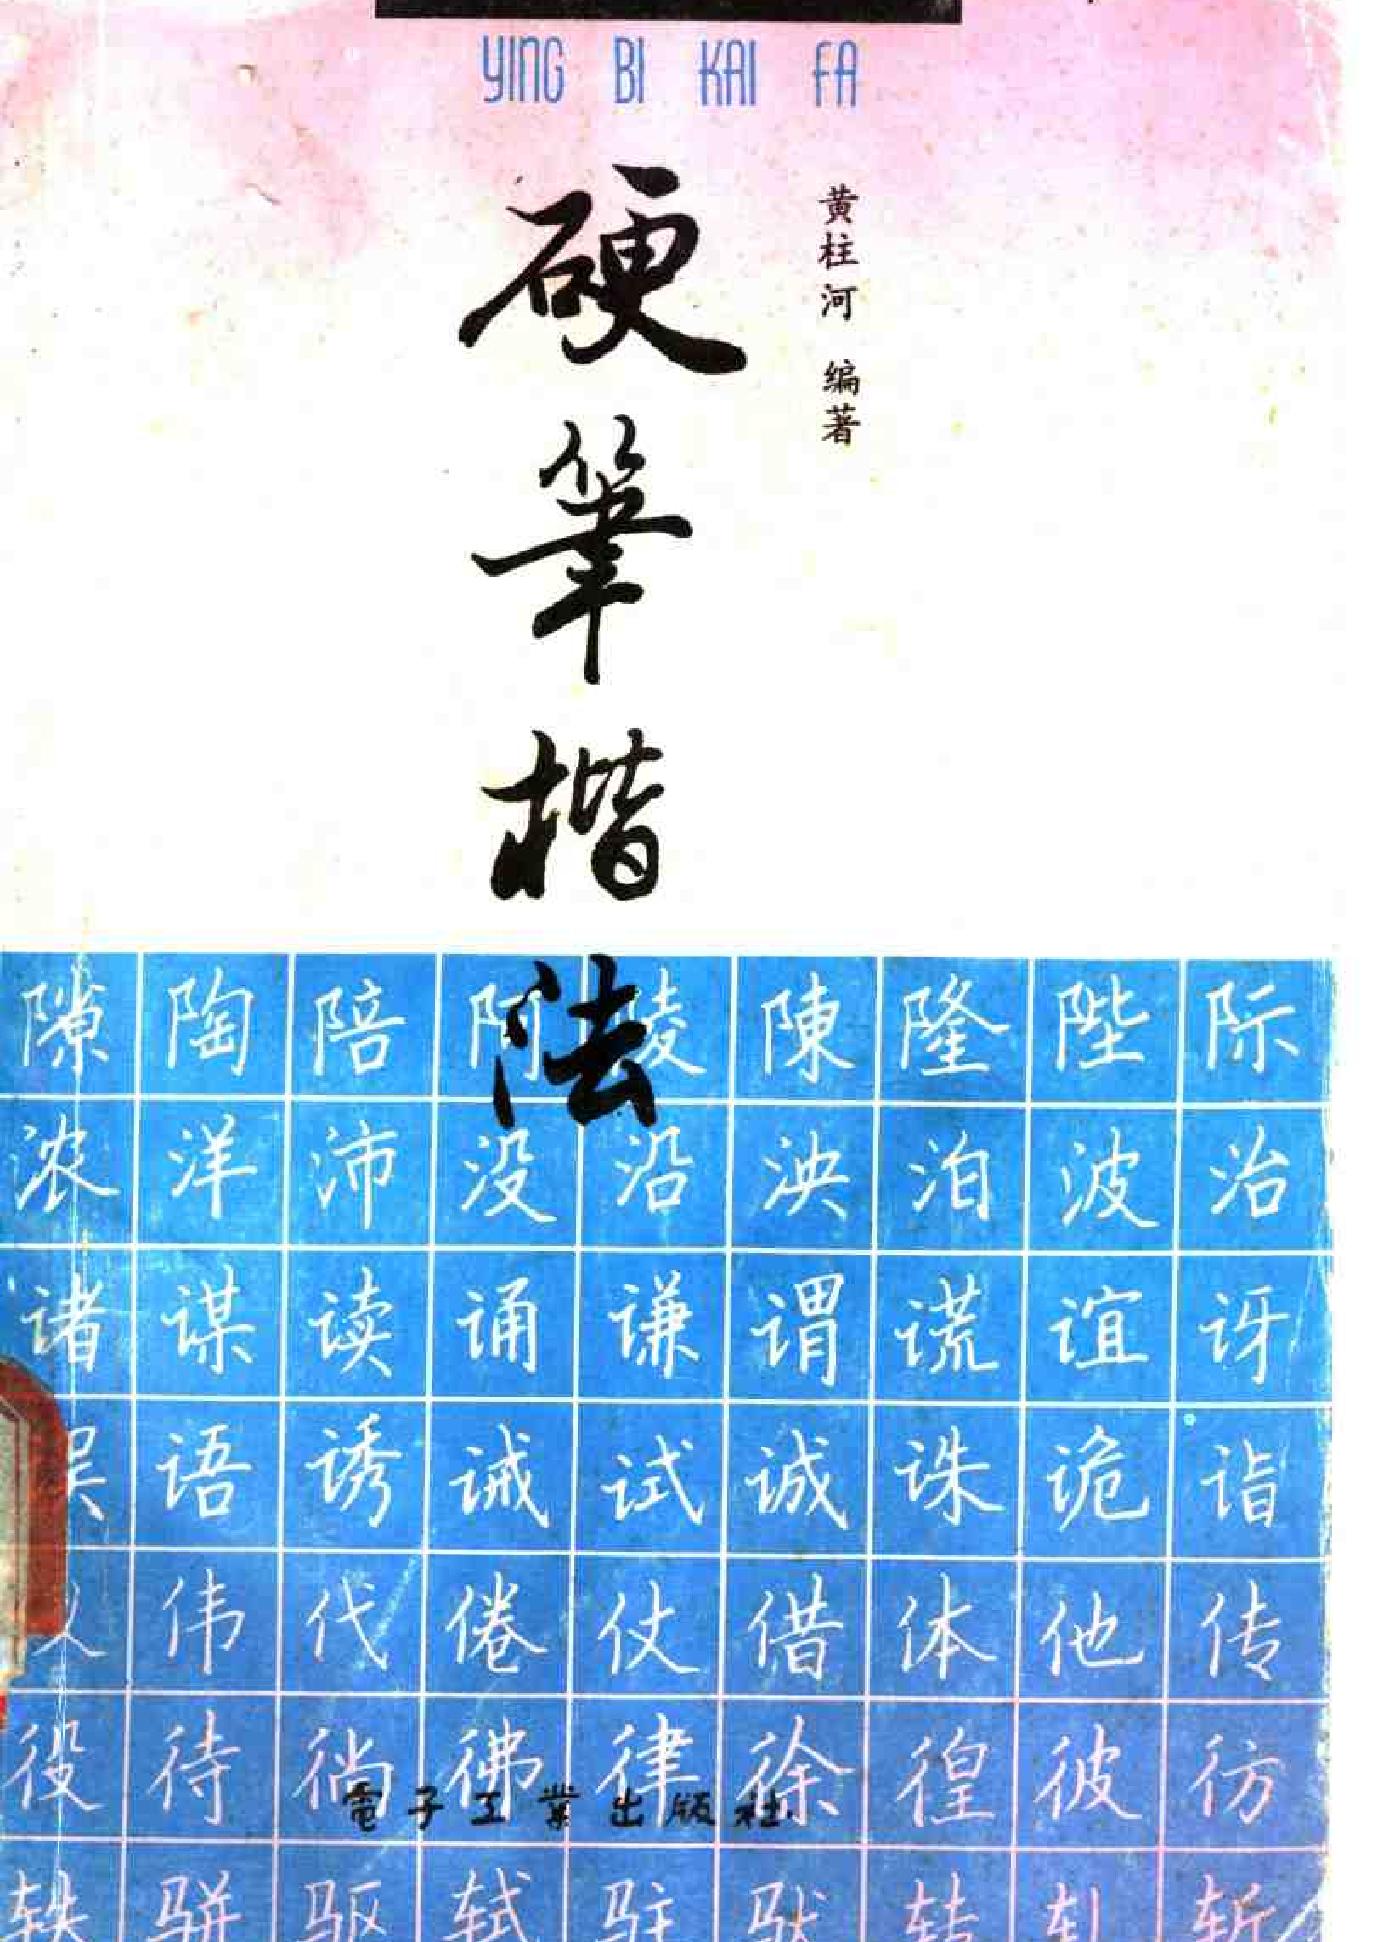 YING BI KAI FA
硬筆楷法
黄柱河 编著
隙陶陪阿陵陳隆陛际
浓洋沛没沿泱泊波治
诸谋读诵谦谓谎谊讶
误语诱诫试诚诛诡诣
伟代倦仗借体他传
役待徜彿律徐徨彼彷
電子工業出版社
轶骈驱轼驻驮转轧斩